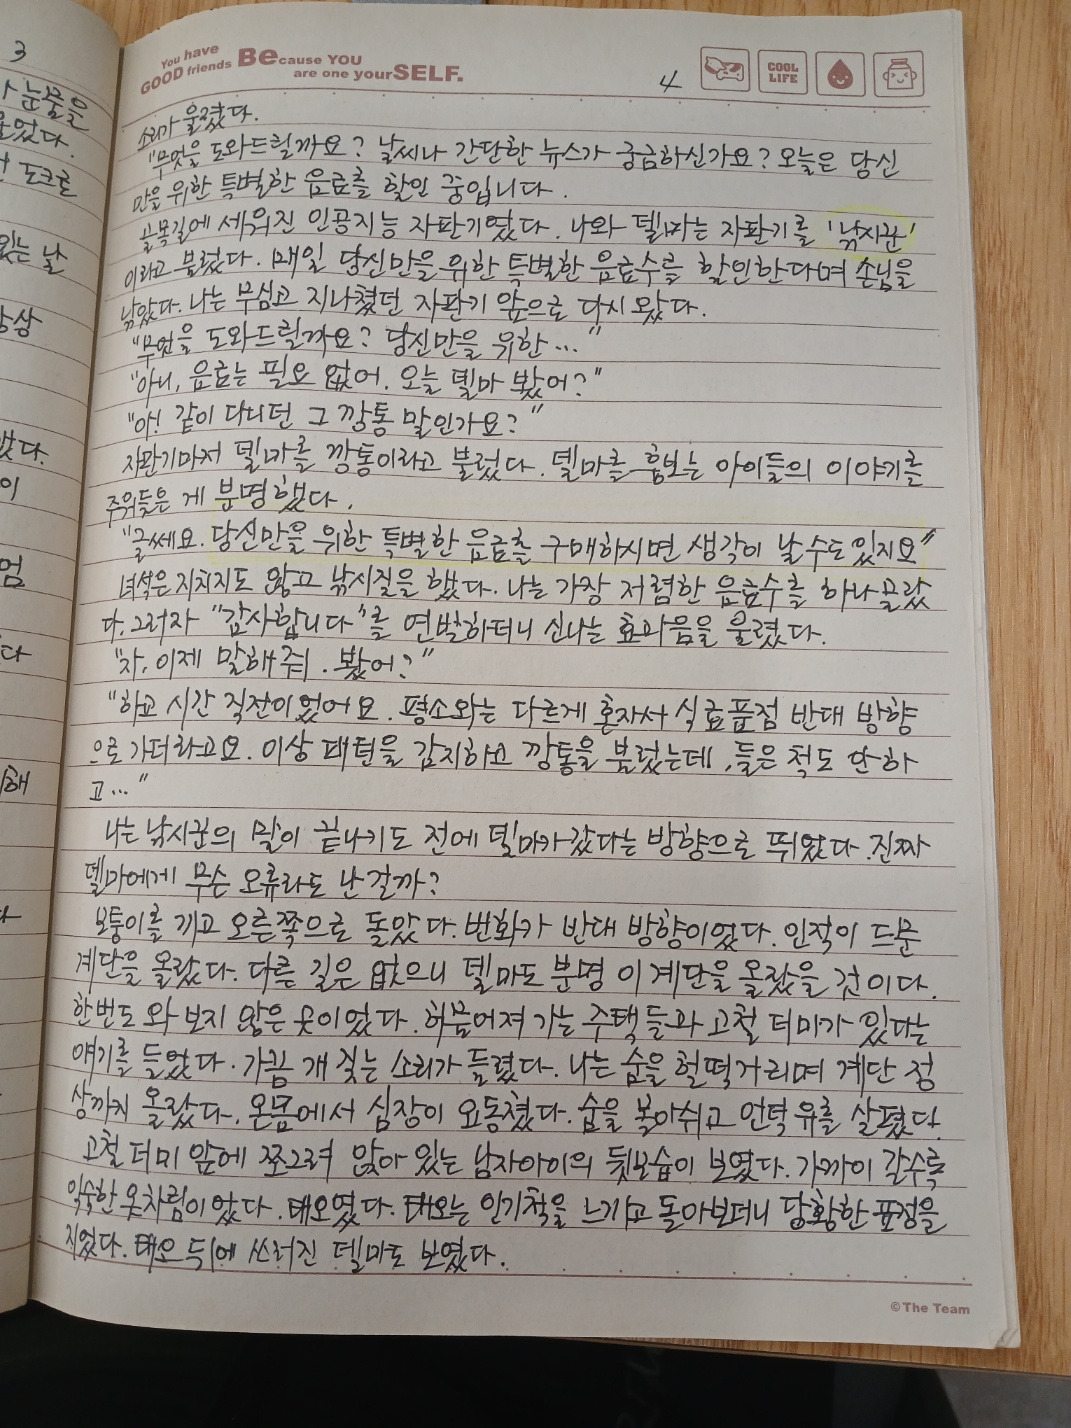 3
눈물을
있는 날
You have GOOD friends BEcause YOU are one yourSELF.
COOL LIFE
4
소리가 울렸다.
"무엇을 도와드릴까요? 날씨나 간단한 뉴스가 궁금하신가요? 오늘은 당신
만을 위한 특별한 음료를 할인 중입니다.
골목길에 세워진 인공지능 자판기였다. 나와 델마는 자판기를 '낚시꾼'
이라고 불렀다. 매일 당신만을 위한 특별한 음료수를 할인한다며 손님을
낚았다. 나는 무심코 지나쳤던 자판기 앞으로 다시 왔다.
"무엇을 도와드릴까요? 당신만을 위한..."
"아니, 음료는 필요 없어. 오늘 델마 봤어?"
"아! 같이 다니던 그 깡통 말인가요?"
자판기마저 델마를 깡통이라고 불렀다. 델마를 흉보는 아이들의 이야기를
주워들은 게 분명했다.
"글쎄요. 당신만을 위한 특별한 음료를 구매하시면 생각이 날 수도 있지요"
녀석은 지치지도 않고 낚시질을 했다. 나는 가장 저렴한 음료수를 하나 골랐
다. 그러자 "감사합니다"를 연발하더니 신나는 효과음을 울렸다.
"자, 이제 말해 줘. 봤어?"
"하교 시간 직전이었어요. 평소와는 다르게 혼자서 식료품점 반대 방향
으로 가더라고요. 이상 패턴을 감지하고 깡통을 불렀는데, 들은 척도 안 하
고..."
나는 낚시꾼의 말이 끝나기도 전에 델마가 갔다는 방향으로 뛰었다. 진짜
델마에게 무슨 오류라도 난 걸까?
모퉁이를 끼고 오른쪽으로 돌았다. 번화가 반대 방향이었다. 인적이 드문
계단을 올랐다. 다른 길은 없으니 델마도 분명 이 계단을 올랐을 것이다.
한번도 와 보지 않은 곳이었다. 허물어져 가는 주택들과 고철 더미가 있다는
얘기를 들었다. 가끔 개 짖는 소리가 들렸다. 나는 숨을 헐떡거리며 계단 정
상까지 올랐다. 온몸에서 심장이 요동쳤다. 숨을 몰아쉬고 언덕 위를 살폈다.
고철 더미 앞에 쪼그려 앉아 있는 남자아이의 뒷모습이 보였다. 가까이 갈수록
익숙한 옷차림이었다. 태오였다. 태오는 인기척을 느끼고 돌아보더니 당황한 표정을
지었다. 태오 뒤에 쓰러진 델마도 보였다.
©The Team